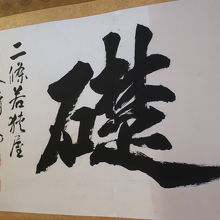 礎
二條若狭屋